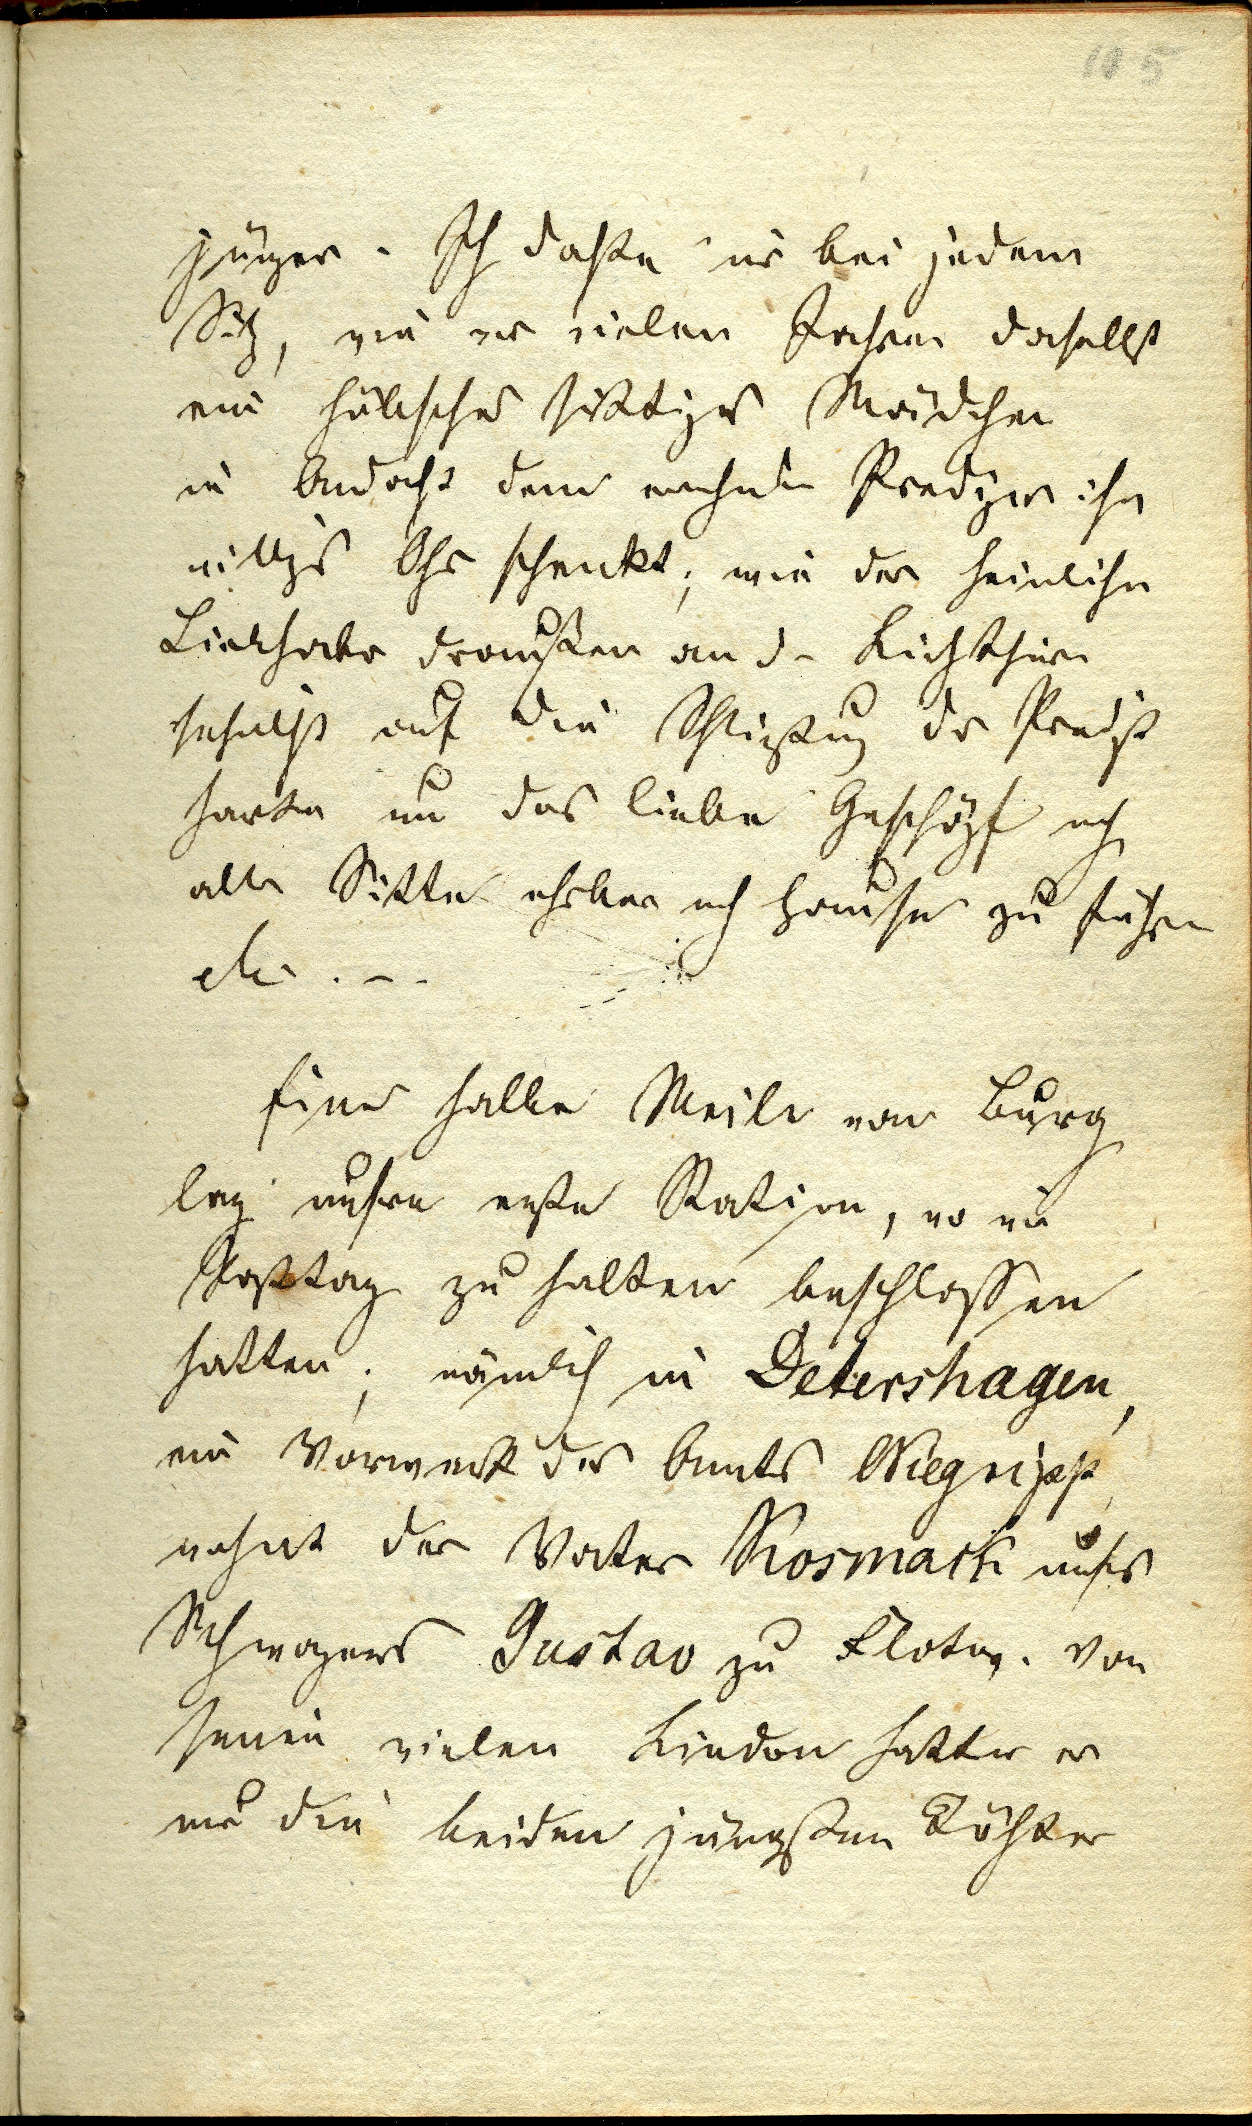 105
jünger. Ich dachte mir bei jedem
Sitz, wie vor vielen Jahren daselbst
ein hübsches sittiges Mädchen
in Andacht dem Prediger ihr
williges Ohr schenkt; wie der heimliche
Liebhaber draussen an d. Kirchthüre
auf die Schliessung der Predigt
harrte um das liebe Geschöpf nach
alter Sitte ehrbar nach Hause zu führen
etc. --
Eine halbe Meile von Burg
lag unsere erste Station, wo wir
Rasttag zu halten beschlossen
hatten; nämlich in Detershagen,
ein Vorwerk des Amts Niegripp,
wohnt der Vater Kosmack unsers
Schwagers Gustav zu Flotow. Von
seinen vielen Kindern hatte er
nur die beiden jüngsten Töchter